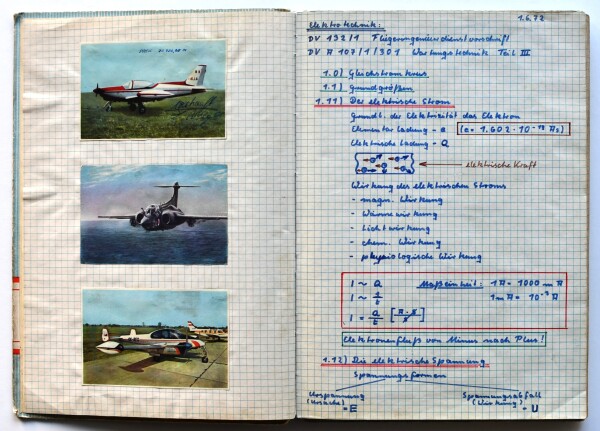 1.6.72
Elektrotechnik:
DV 132/1 Fliegeringenieurdienstvorschrift
DV A 107/1/301 Wartungstechnik Teil III
1.0) Gleichstromkreis
1.1) Grundgrößen
1.11) Der elektrische Strom
Grundl. der Elektrizität das Elektron
Elementarladung - e (e = 1.602 · 10⁻¹⁹ As)
Elektrische Ladung - Q
elektrische Kraft
Wirkung des elektrischen Stroms
- magn. Wirkung
- Wärmewirkung
- Lichtwirkung
- chem. Wirkung
- physiologische Wirkung
I ~ Q Maßeinheit: 1A = 1000 mA
I ~ 1/t 1mA = 10⁻³ A
I = Q/t [A·s/s]
Elektronenfluß von Minus nach Plus!
1.12) Die elektrische Spannung
Spannungsformen
Urspannung Spannungsabfall
(Ursache) = E (Wirkung) = U